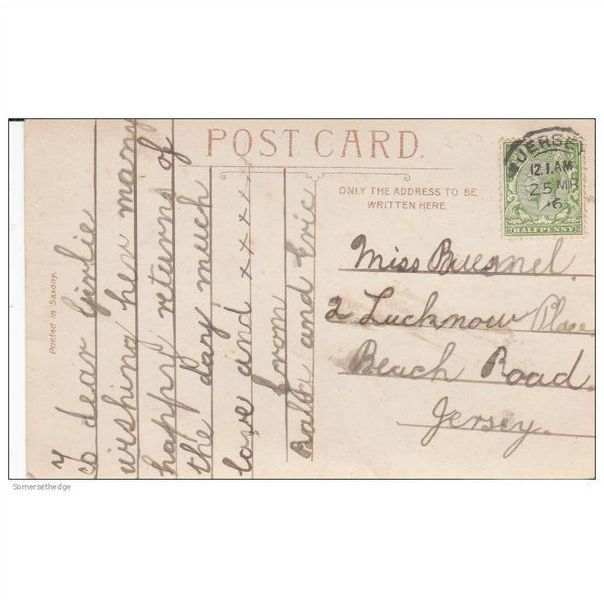 POST CARD.
ONLY THE ADDRESS TO BE
WRITTEN HERE.
JERSEY
12.1.AM
25 MR
16
HALFPENNY
Miss
2 Lucknow Place
Beach Road
Jersey.
To dear Girlie
wishing her many
happy returns of
the day much
love and x x x x
from
and Eric
Printed in Saxony.
Somersethedge